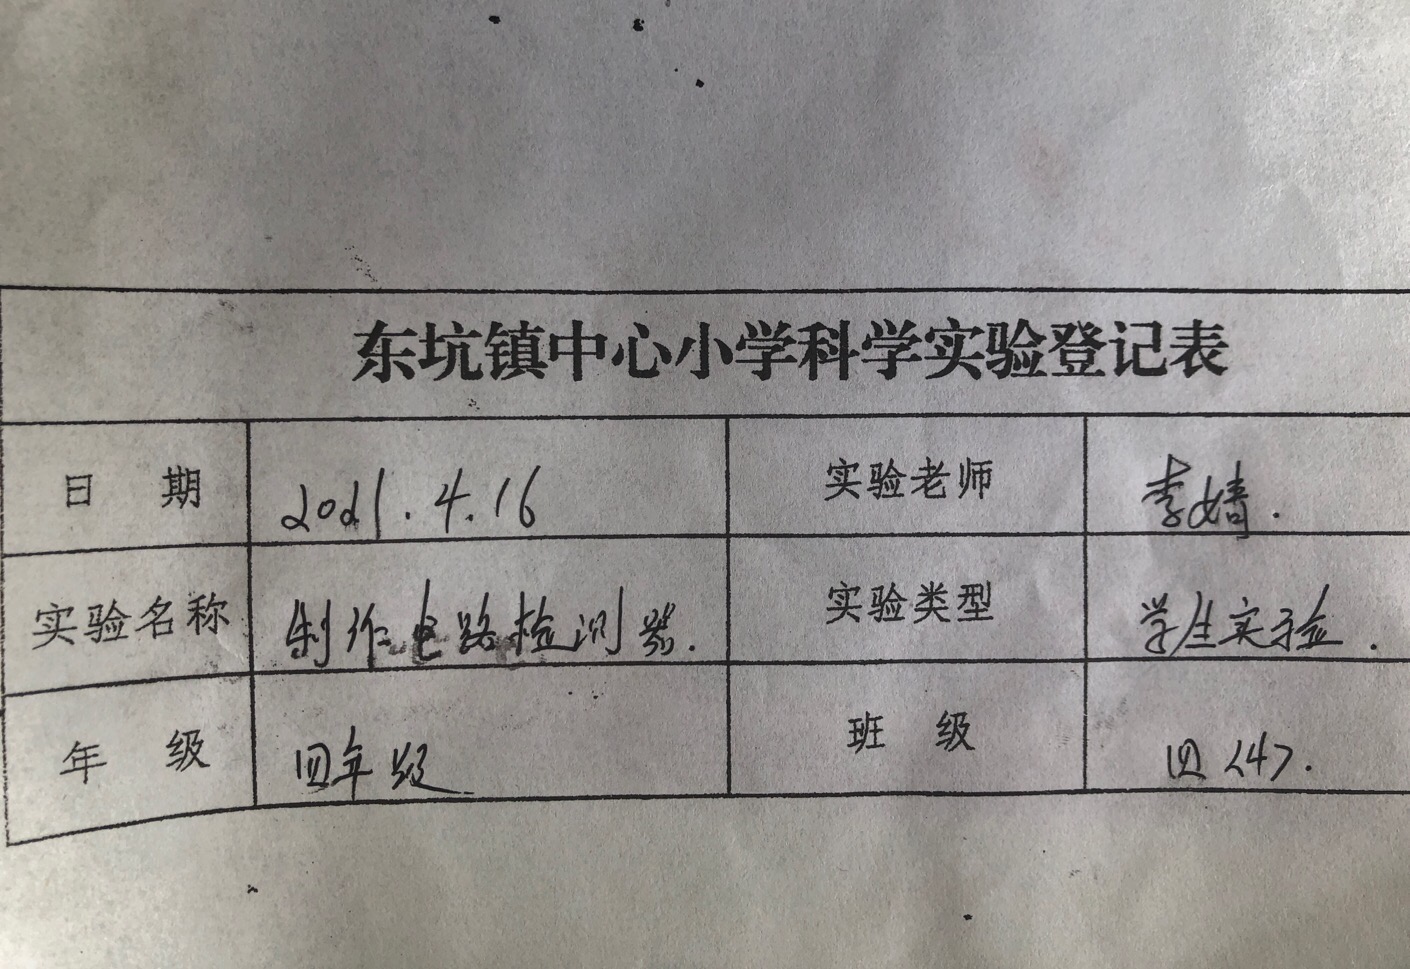 东坑镇中心小学科学实验登记表
日 期 2021.4.16 实验老师 李婧.
实验名称 制作电路检测器. 实验类型 学生实验.
年 级 四年级 班 级 四〈4〉.